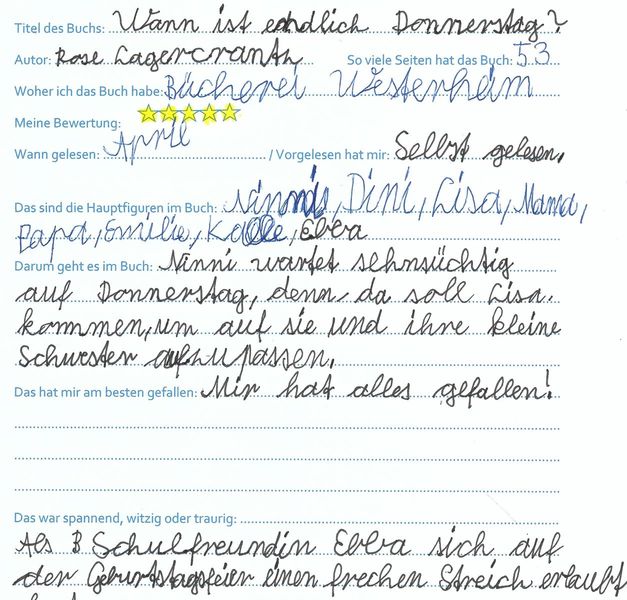 Titel des Buchs: Wann ist endlich Donnerstag?
Autor: Rose Lagercrantz So viele Seiten hat das Buch: 53
Woher ich das Buch habe: Bücherei Westerheim
Meine Bewertung:
Wann gelesen: April / Vorgelesen hat mir: Selbst gelesen.
Das sind die Hauptfiguren im Buch: Ninni, Dini, Lisa, Mama,
Papa, Emilie, Kalle, Ebba
Darum geht es im Buch: Ninni wartet sehnsüchtig
auf Donnerstag, denn da soll Lisa
kommen, um auf sie und ihre kleine
Schwester aufzupassen.
Das hat mir am besten gefallen: Mir hat alles gefallen!
Das war spannend, witzig oder traurig:
Als Schulfreundin Ebba sich auf
der Geburtstagsfeier einen frechen Streich erlaubt